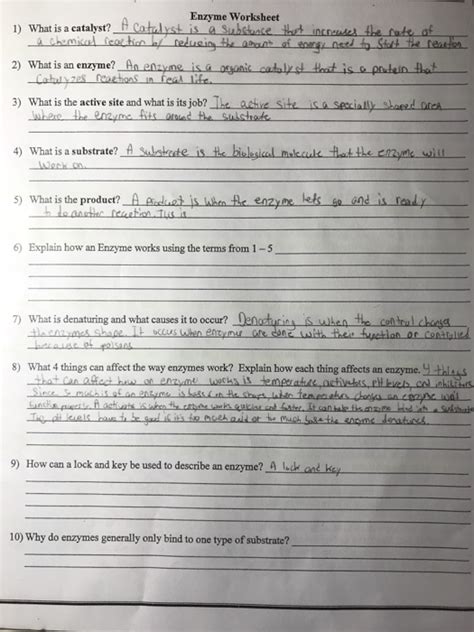 Enzyme Worksheet
1) What is a catalyst? A Catalyst is a Substance that increases the rate of
a chemical reaction by reducing the amount of energy need to Start the reaction
2) What is an enzyme? An enzyme is a organic catalyst that is a protein that
Catalyzes reactions in real life.
3) What is the active site and what is its job? The active site is a specially shaped area
where the enzyme fits around the substrate
4) What is a substrate? A substrate is the biological molecule that the enzyme will
work on.
5) What is the product? A Product is when the enzyme lets go and is ready
to do another reaction. This is
6) Explain how an Enzyme works using the terms from 1 – 5
7) What is denaturing and what causes it to occur? Denaturing is when the control changes
the enzymes shape. It occurs when enzymes are done with their function or controlled
because of poisons
8) What 4 things can affect the way enzymes work? Explain how each thing affects an enzyme. 4 things
that can affect how an enzyme works is temperature, activators, pH levels, and inhibitors
Since so much is of an enzyme is based on the shape, when temperature changes an enzyme will
function properly. A activator is when the enzyme works quicker and faster. It can help the enzyme bind into a substrate
The pH levels have to be good if it's too much acid or too much base the enzyme denatures.
9) How can a lock and key be used to describe an enzyme? A lock and key
10) Why do enzymes generally only bind to one type of substrate?